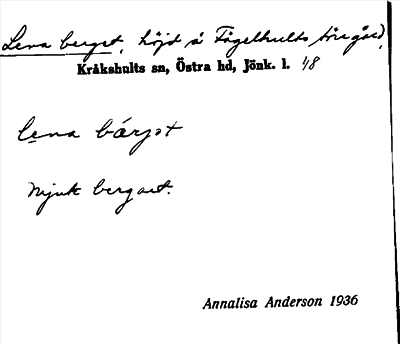 Lena berget, höjd å Fågelhults storegård,
Kråkshults sn, Östra hd, Jönk. l. 48
lena bärjət
mjuk bergart.
Annalisa Anderson 1936